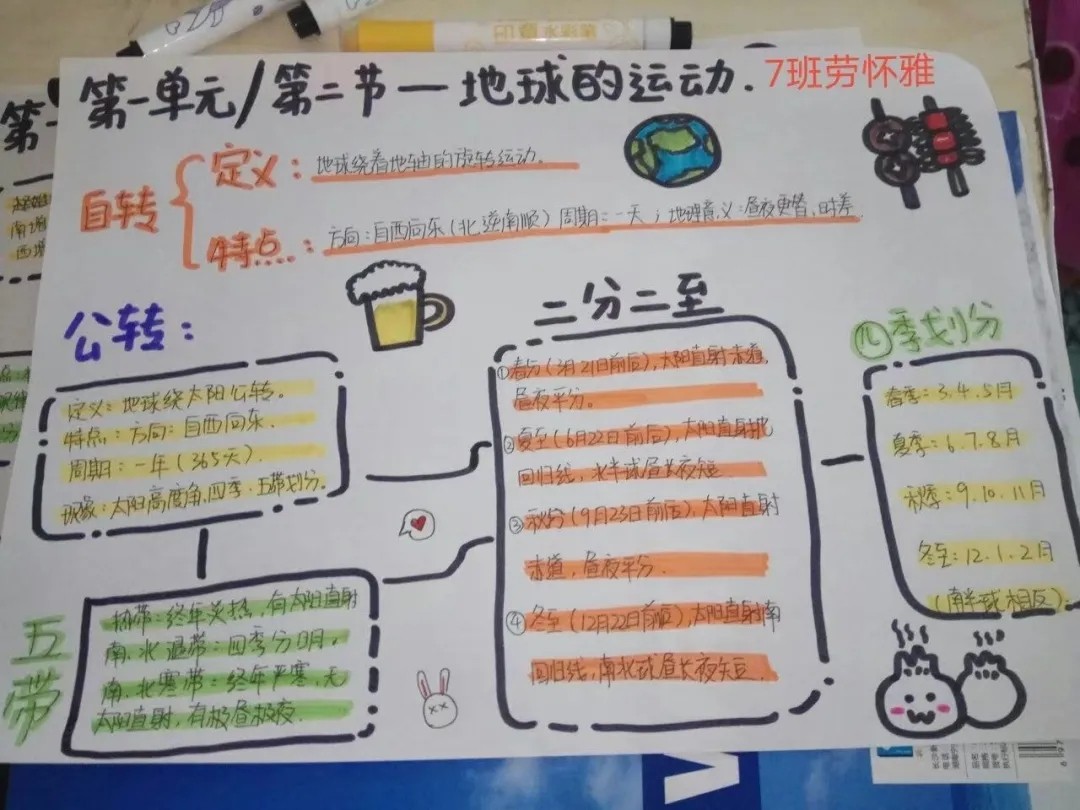 第一单元/第二节一地球的运动.
7班劳怀雅
自转
定义：地球绕着地轴的旋转运动。
特点：方向：自西向东(北逆南顺) 周期：一天；地理意义：昼夜更替，时差
公转：
定义：地球绕太阳公转。
特点：方向：自西向东.
周期：一年(365天).
现象：太阳高度角，四季，五带划分。
五带
热带：终年炎热，有太阳直射
南、北温带：四季分明，
南、北寒带：终年严寒，无
太阳直射，有极昼极夜.
二分二至
①春分(3月21日前后)，太阳直射赤道，
昼夜平分。
②夏至(6月22日前后)，太阳直射北
回归线，北半球昼长夜短
③秋分(9月23日前后)，太阳直射
赤道，昼夜平分.
④冬至(12月22日前后)，太阳直射南
回归线，南北球昼长夜短.
四季划分
春季：3.4.5月
夏季：6.7.8月
秋季：9.10.11月
冬至：12.1.2月
(南半球相反)